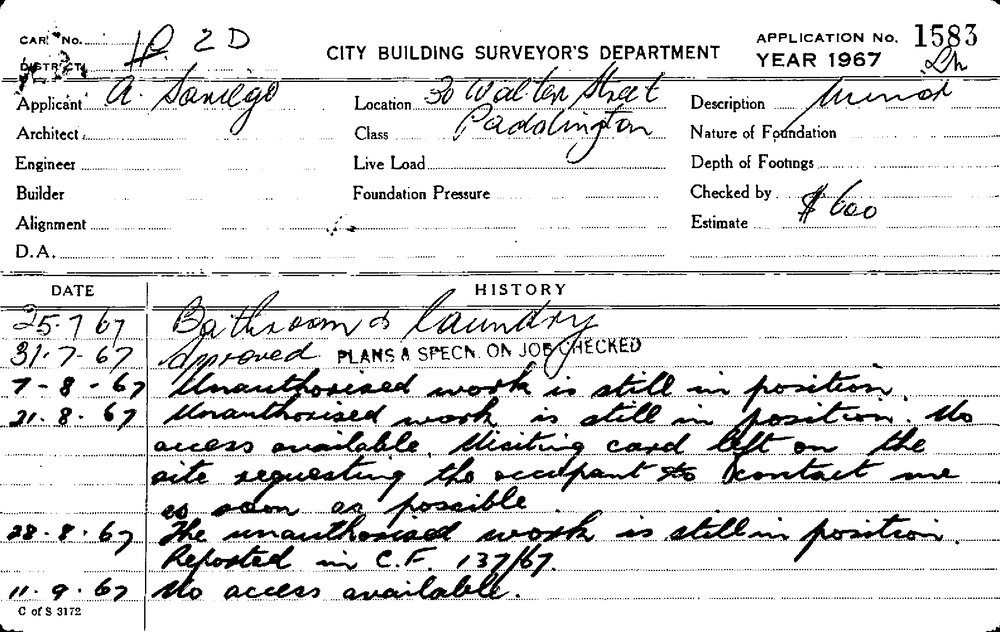 CARD No. HP. 2D
DISTRICT
CITY BUILDING SURVEYOR'S DEPARTMENT
APPLICATION No. 1583
YEAR 1967
Applicant A. Sariego
Location 30 Walter Street
Description Minor
Architect
Class Paddington
Nature of Foundation
Engineer
Live Load
Depth of Footings
Builder
Foundation Pressure
Checked by
Alignment
Estimate $600
D.A.
DATE HISTORY
25.7 67 Bathroom & laundry
31.7.67 Approved PLANS & SPECN. ON JOB CHECKED
7-8-67 Unauthorised work is still in position.
21.8.67 Unauthorised work is still in position. No
access available. Visiting card left on the
site requesting the occupant to contact me
as soon as possible.
28.8.67 The unauthorised work is still in position.
Reported in C.F. 137/67.
11.9.67 No access available.
C of S 3172